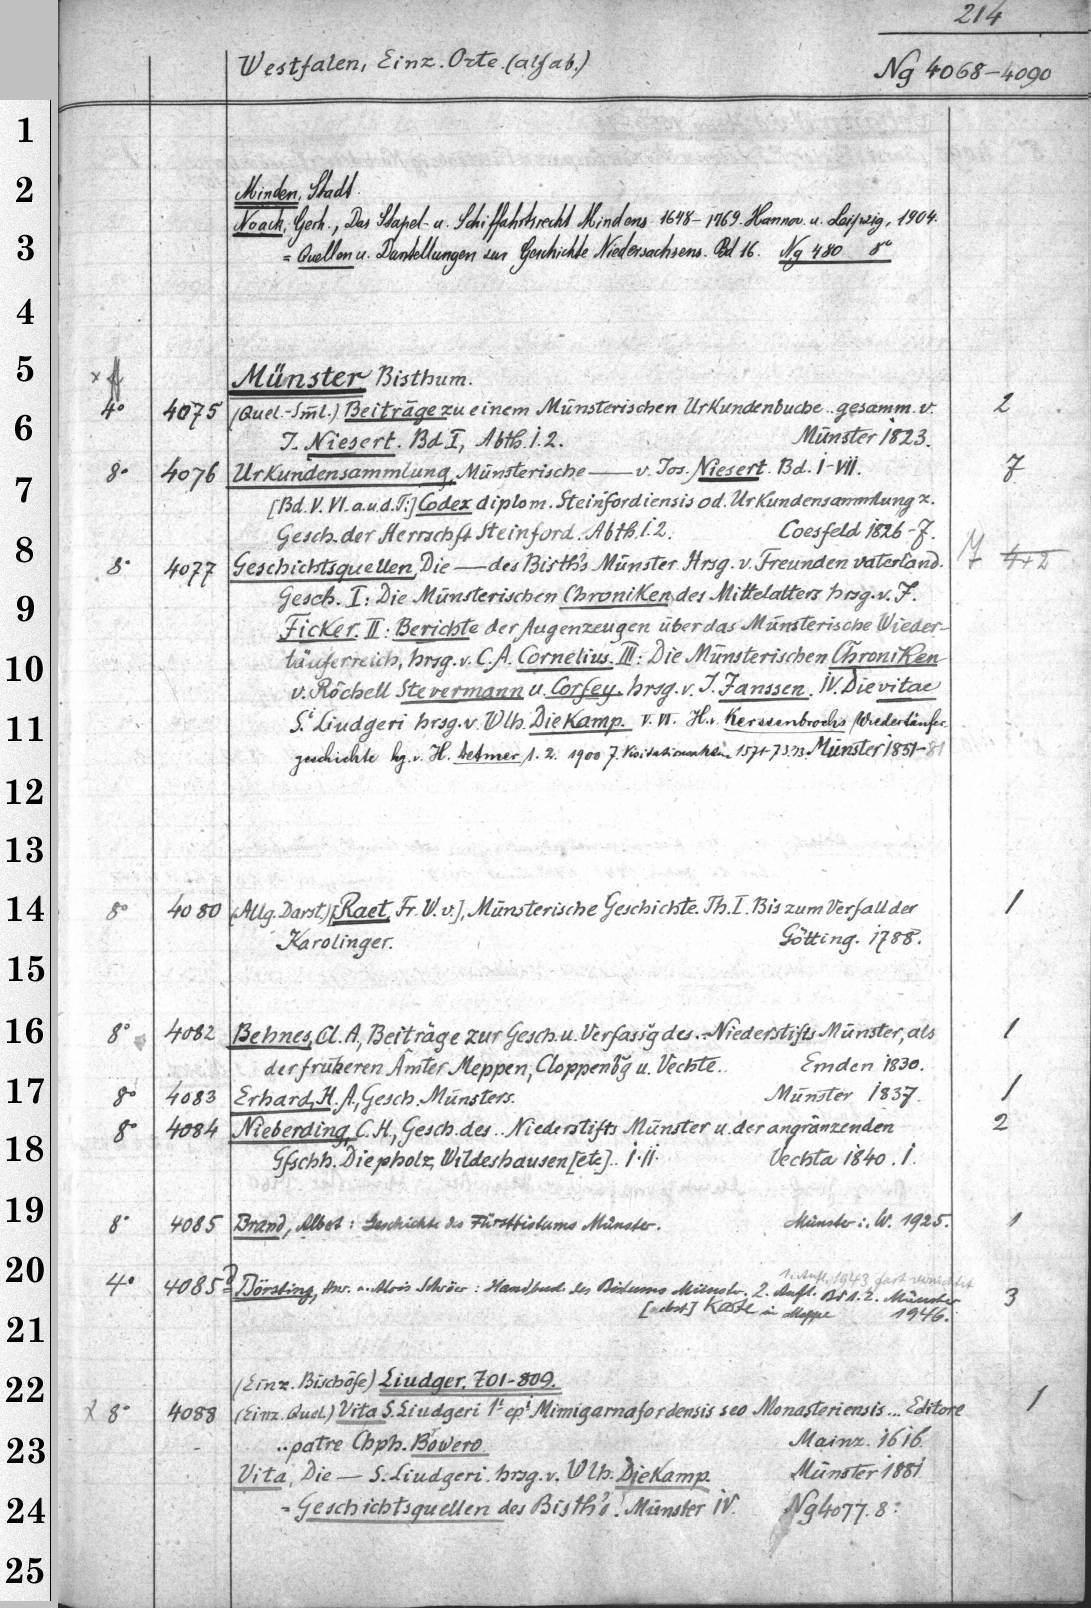 214
Westfalen, Einz. Orte. (alfab.)
Ng 4068-4090
1
2
3
4
5
6
7
8
9
10
11
12
13
14
15
16
17
18
19
20
21
22
23
24
25
Minden, Stadt.
Noack, Gerh., Das Stapel- u. Schiffahrtsrecht Mindens 1648-1769. Hannov. u. Leipzig, 1904.
= Quellen u. Darstellungen zur Geschichte Niedersachsens. Bd 16. Ng 480 8°
Münster Bisthum.
4° 4075 (Quel.-Sml.) Beiträge zu einem Münsterischen Urkundenbuche .. gesamm. v. 2
J. Niesert. Bd I, Abth. 1.2. Münster 1823.
8° 4076 Urkundensammlung, Münsterische — v. Jos. Niesert. Bd. I-VII. 7
[Bd. V. VI. a.u.d.T:] Codex diplom. Steinfordiensis od. Urkundensammlung z.
Gesch. der Herrschft Steinford. Abth. 1.2. Coesfeld 1826-7.
8° 4077 Geschichtsquellen, Die — des Bisth's Münster. Hrsg. v. Freunden vaterländ. 4+2
Gesch. I: Die Münsterischen Chroniken des Mittelalters hrsg. v. J.
Ficker. II: Berichte der Augenzeugen über das Münsterische Wieder-
täuferreich, hrsg. v. C. A. Cornelius. III: Die Münsterischen Chroniken
v. Röchell Stevermann u. Corfey. hrsg. v. J. Janssen. IV. Die vitae
S.i Liudgeri hrsg. v. Wlh. Diekamp. V. VI. H. v. Kerssenbrochs Wiedertäufer
geschichte hg. v. H. Detmer 1. 2. 1900 7. 1571-73. Münster 1851-81
8° 4080 (Allg. Darst.) [Raet, Fr. W. v.], Münsterische Geschichte. Th. I. Bis zum Verfall der 1
Karolinger. Götting. 1788.
8° 4082 Behnes, Cl. A., Beiträge zur Gesch. u. Verfassg des .. Niederstifts Münster, als 1
der früheren Ämter Meppen, Cloppenbg u. Vechte.. Emden 1830.
8° 4083 Erhard, H. A., Gesch. Münsters. Münster 1837. 1
8° 4084 Nieberding, C. H., Gesch. des .. Niederstifts Münster u. der angränzenden 2
Gfschh. Diepholz, Wildeshausen [etc].. I.II. Vechta 1840.1.
8° 4085 Brand, Albert: Geschichte des Fürstbistums Münster. Münster i. W. 1925. 1
1. Aufl. 1943 fast vernichtet
4° 4085 a Börsting, Hnr. u. Alois Schröer: Handbuch des Bistums Münster. 2. Aufl. Bd 1.2. Münster 3
[nebst] Karte in Mappe 1946.
(Einz. Bischöfe) Liudger. 701-809.
x 8° 4088 (Einz. Quel.) Vita S. Liudgeri 1i epi Mimigarnafordensis seo Monasteriensis ... Editore 1
.. patre Chph. Bowero Mainz. 1616.
Vita, Die — S. Liudgeri. hrsg. v. Wlh. Diekamp. Münster 1881
= Geschichtsquellen des Bisth's. Münster IV. Ng 4077. 8°